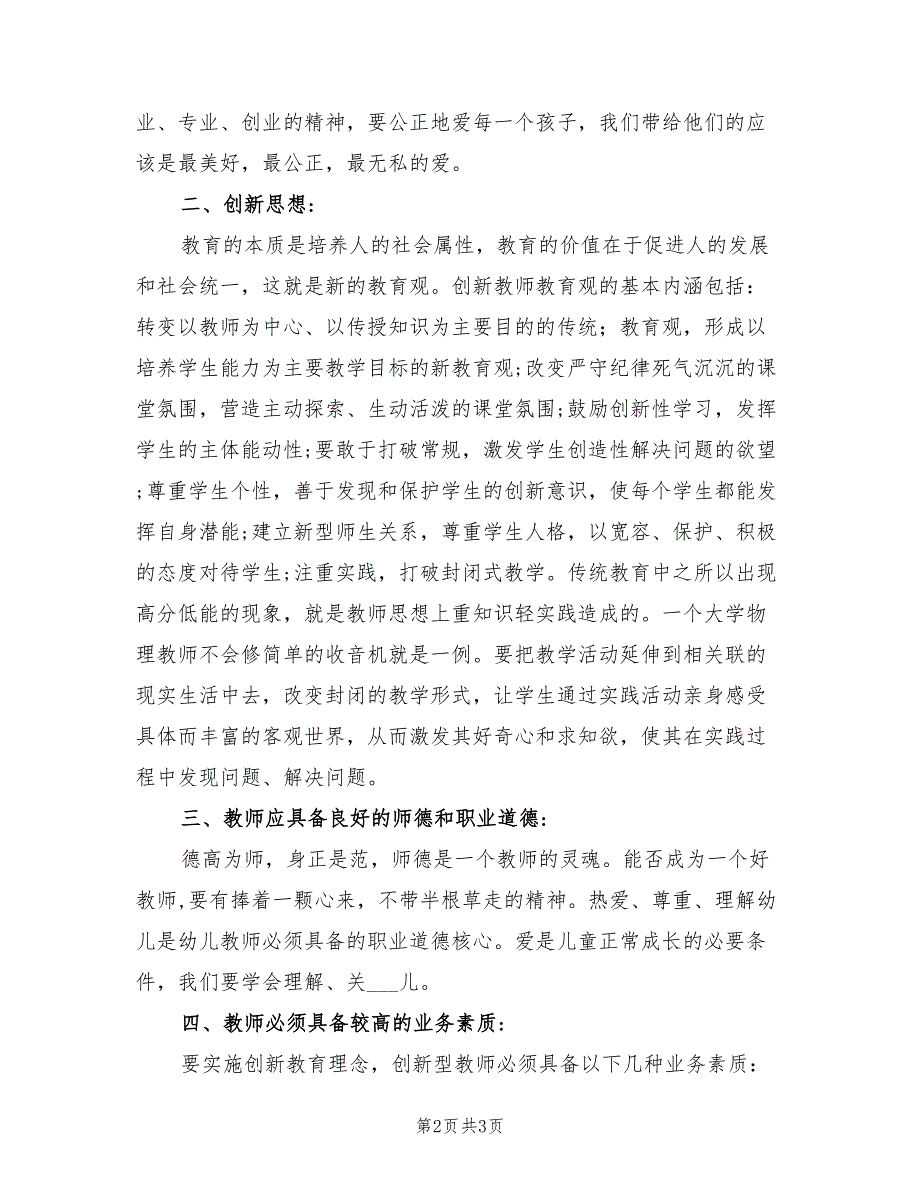 业、专业、创业的精神，要公正地爱每一个孩子，我们带给他们的应
该是最美好，最公正，最无私的爱。
二、创新思想：
教育的本质是培养人的社会属性，教育的价值在于促进人的发展
和社会统一，这就是新的教育观。创新教师教育观的基本内涵包括：
转变以教师为中心、以传授知识为主要目的的传统；教育观，形成以
培养学生能力为主要教学目标的新教育观;改变严守纪律死气沉沉的课
堂氛围，营造主动探索、生动活泼的课堂氛围;鼓励创新性学习，发挥
学生的主体能动性;要敢于打破常规，激发学生创造性解决问题的欲望
;尊重学生个性，善于发现和保护学生的创新意识，使每个学生都能发
挥自身潜能;建立新型师生关系，尊重学生人格，以宽容、保护、积极
的态度对待学生;注重实践，打破封闭式教学。传统教育中之所以出现
高分低能的现象，就是教师思想上重知识轻实践造成的。一个大学物
理教师不会修简单的收音机就是一例。要把教学活动延伸到相关联的
现实生活中去，改变封闭的教学形式，让学生通过实践活动亲身感受
具体而丰富的客观世界，从而激发其好奇心和求知欲，使其在实践过
程中发现问题、解决问题。
三、教师应具备良好的师德和职业道德：
德高为师，身正是范，师德是一个教师的灵魂。能否成为一个好
教师,要有捧着一颗心来，不带半根草走的精神。热爱、尊重、理解幼
儿是幼儿教师必须具备的职业道德核心。爱是儿童正常成长的必要条
件，我们要学会理解、关___儿。
四、教师必须具备较高的业务素质：
要实施创新教育理念，创新型教师必须具备以下几种业务素质：
第2页共3页